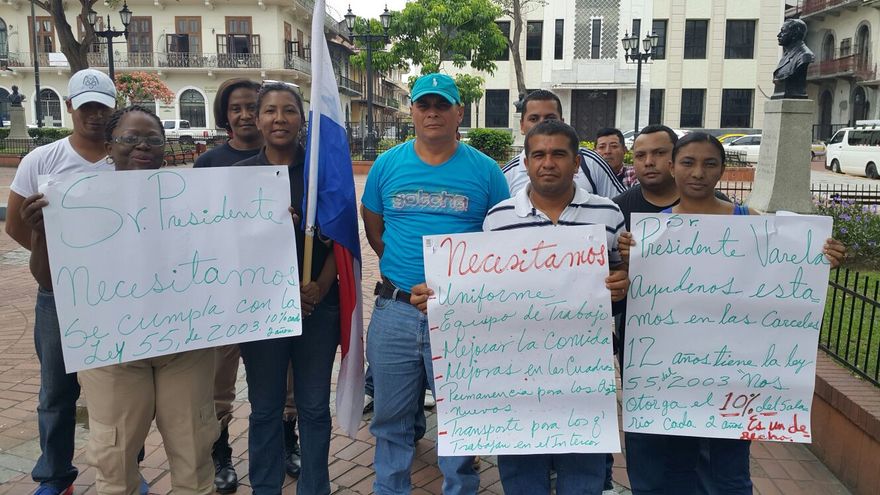 Sr. Presidente
Necesitamos
Se cumpla con la
Ley 55, de 2003. 10% cada
2 años
gotcha
Necesitamos
Uniforme
- Equipo de Trabajo
- Mejorar la Comida
- Mejoras en las Cuadras
- Permanencia para los Agte
Nuevos
- Transporte para los q'
Trabajan en el Interior
Sr.
Presidente Varela
Ayudenos esta
mos en las Carceles
12 años tiene la ley
55, del 2003 Nos
Otorga el 10% del Sala
rio cada 2 años. Es un de
recho.